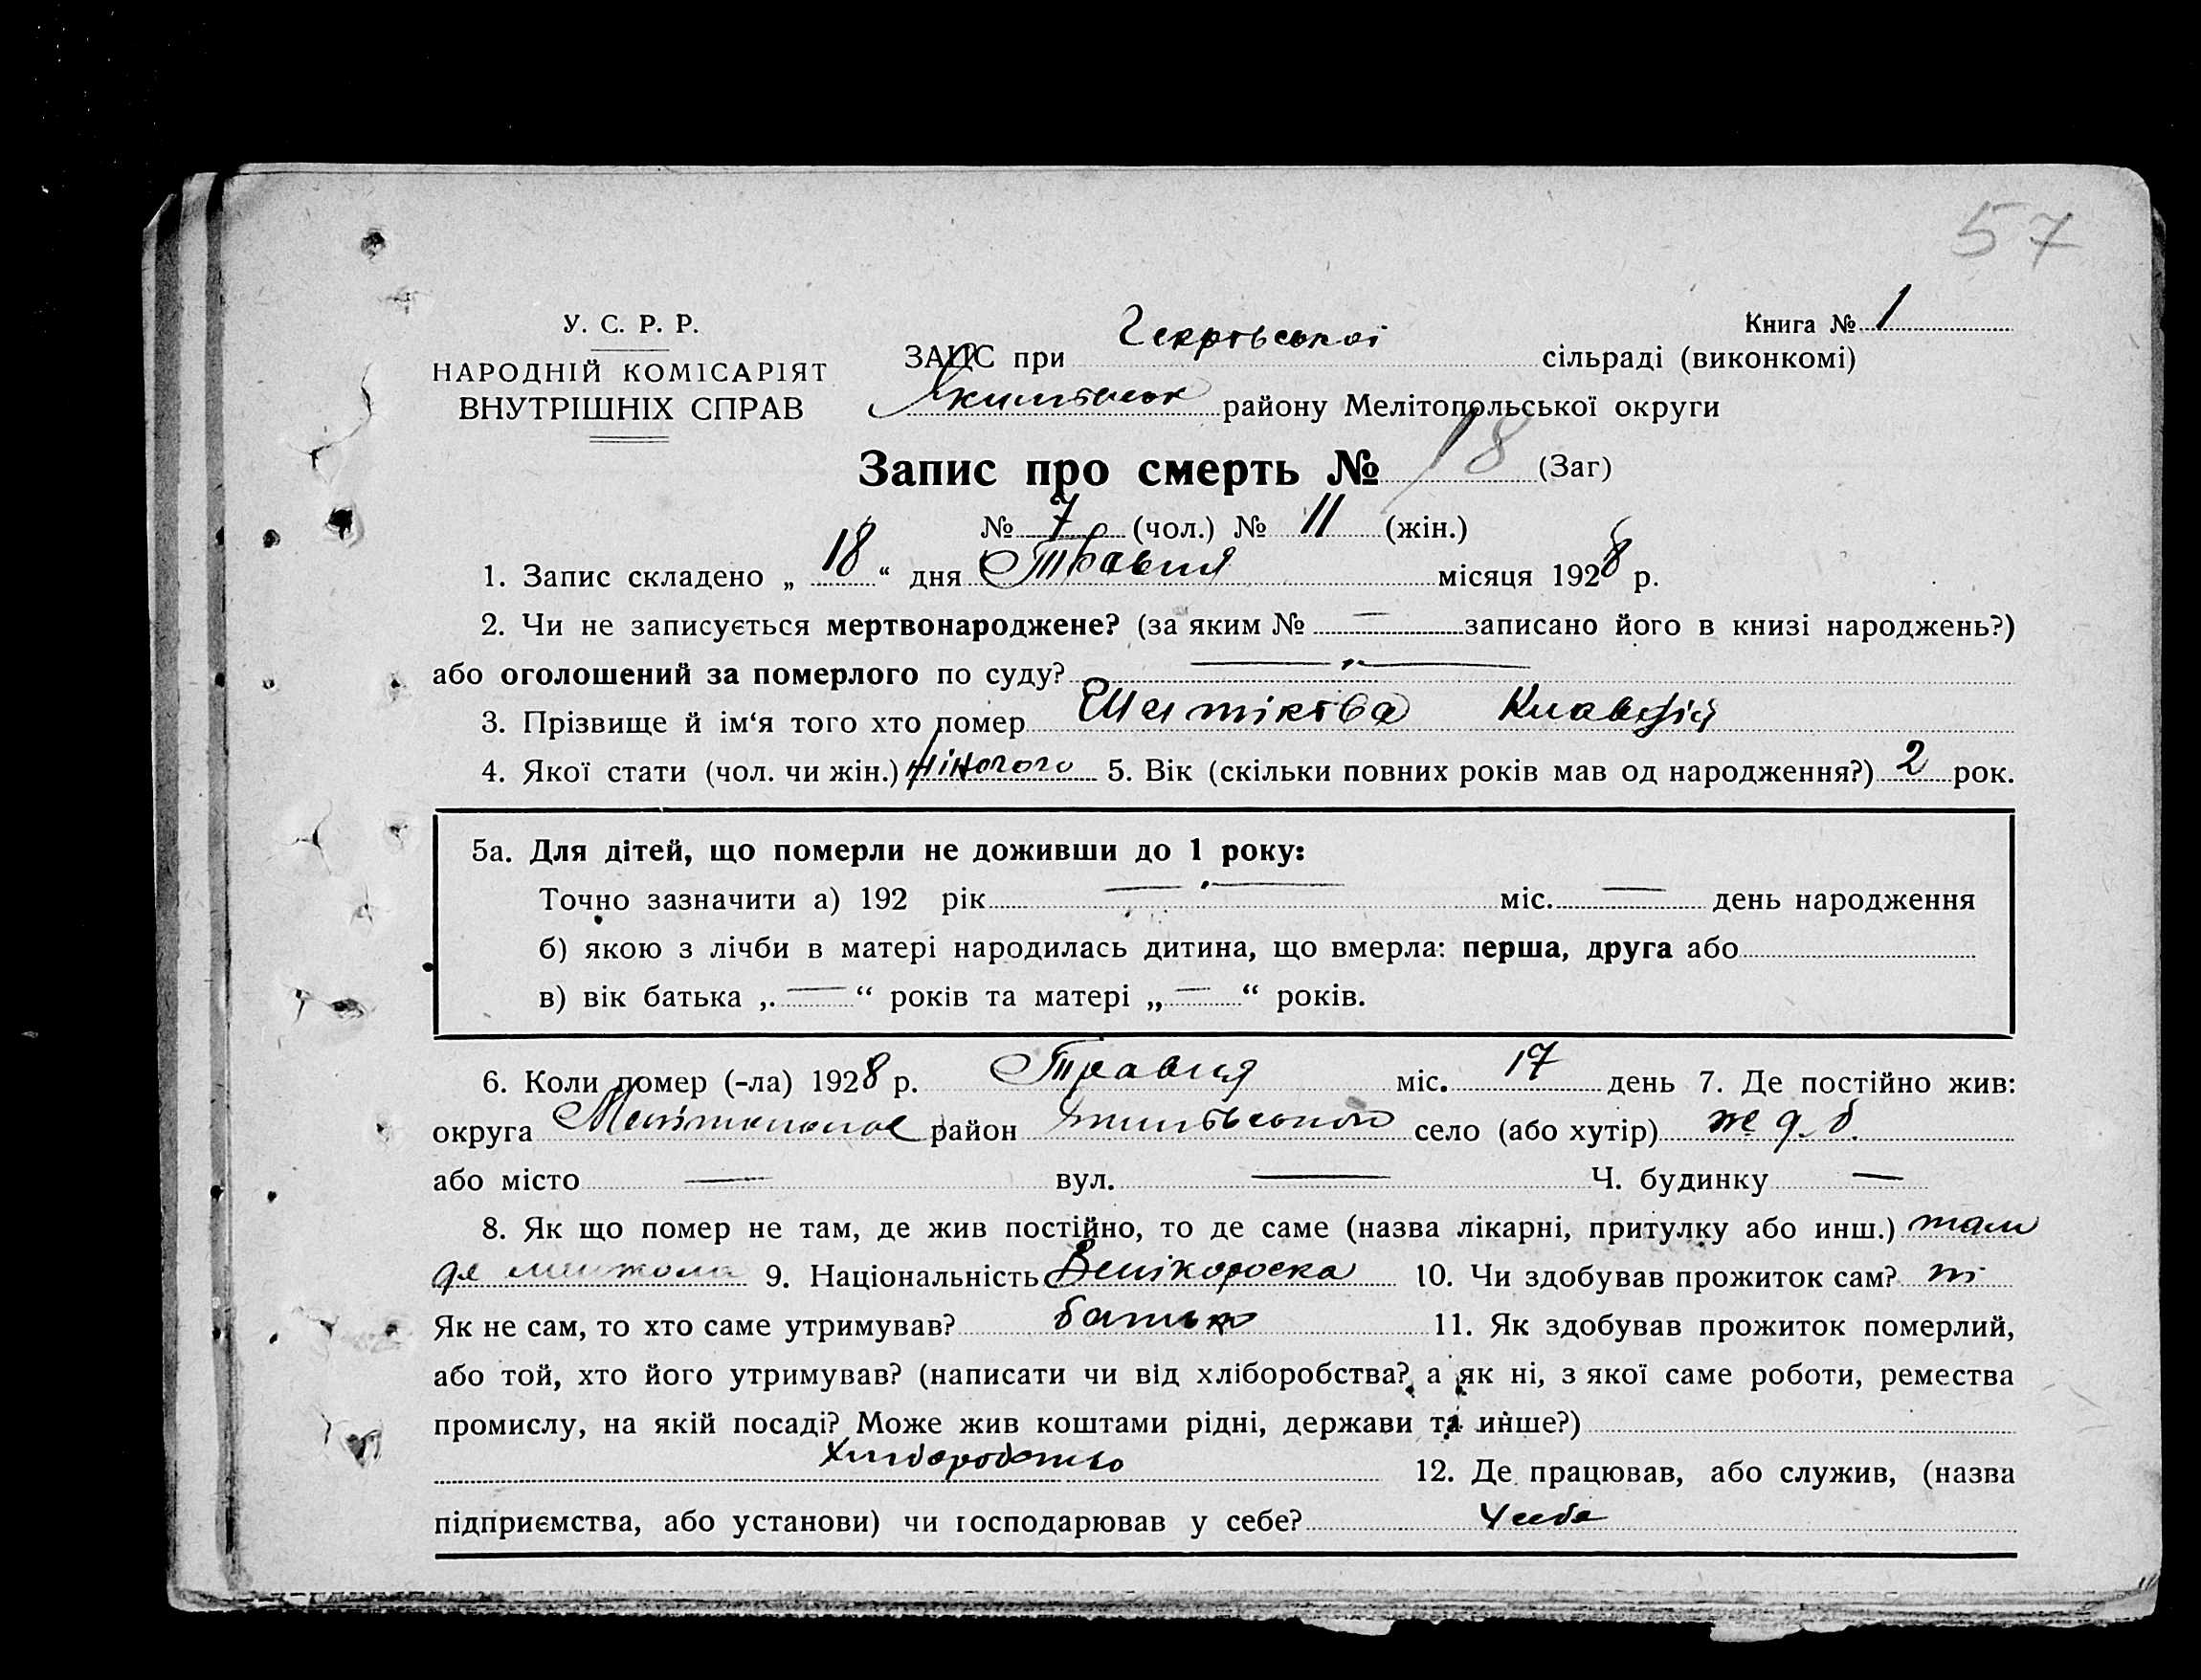 57
У. С. Р. Р.
НАРОДНІЙ КОМІСАРІЯТ
ВНУТРІШНІХ СПРАВ
Книга № 1
ЗАПС при сільраді (виконкомі)
району Мелітопольської округи
Запис про смерть № 18 (Заг)
№ 7 (чол.) № 11 (жін.)
1. Запис складено „ 18 “ дня Травня місяця 1928 р.
2. Чи не записується мертвонароджене? (за яким № — записано його в книзі народжень?)
або оголошений за померлого по суду? —
3. Прізвище й ім‘я того хто помер Клавдія
4. Якої стати (чол. чи жін.) жіногого 5. Вік (скільки повних років мав од народження?) 2 рок.
5а. Для дітей, що померли не доживши до 1 року:
Точно зазначити а) 192 рік — міс. — день народження
б) якою з лічби в матері народилась дитина, що вмерла: перша, друга або
в) вік батька „ — “ років та матері „ — “ років.
6. Коли помер (-ла) 1928 р. Травня міс. 17 день 7. Де постійно жив:
округа район село (або хутір)
або місто — вул. — Ч. будинку —
8. Як що помер не там, де жив постійно, то де саме (назва лікарні, притулку або инш.) там
9. Національність Велікороска 10. Чи здобував прожиток сам?
Як не сам, то хто саме утримував? батько 11. Як здобував прожиток померлий,
або той, хто його утримував? (написати чи від хліборобства? а як ні, з якої саме роботи, ремества
промислу, на якій посаді? Може жив коштами рідні, держави та инше?)
Хліборобство 12. Де працював, або служив, (назва
підприємства, або установи) чи господарював у себе? У себе